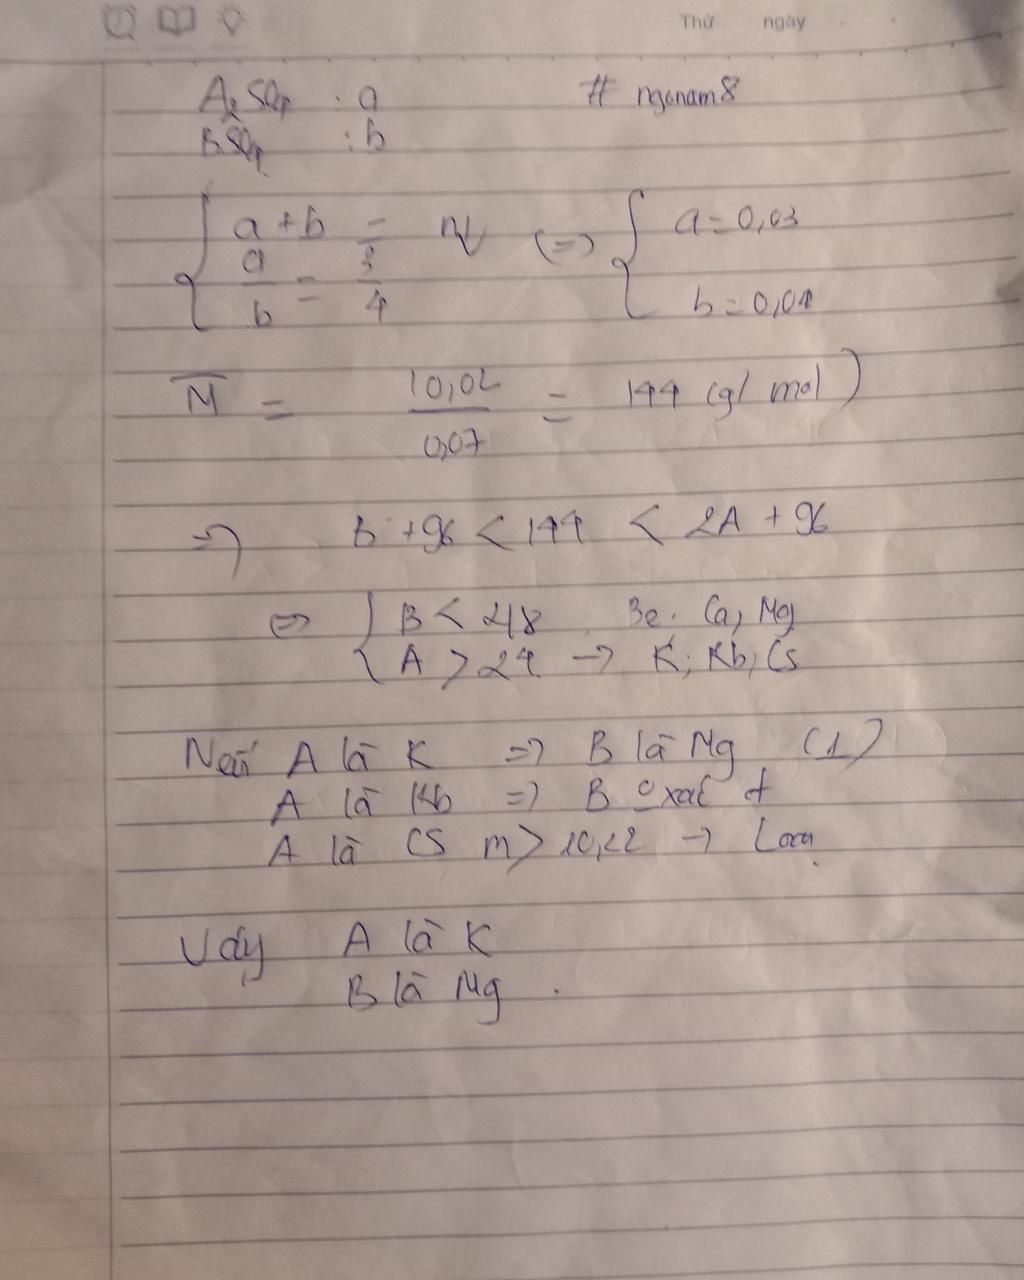 Thứ ngày
A₂SO₄ : a # ngonam8
BSO₄ : b
{ a + b = (=>) { a = 0,03
a/b = 3/4 b = 0,04
M̅ = 10,02/0,07 = 144 (g/mol)
=> B + 96 < 144 < 2A + 96
<=> { B < 48 Be. Ca, Mg
A > 24 -> K, Rb, Cs
Nếu A là K => B là Mg (1)
A là Rb => B xác
A là CS m > 10,22 -> Loại
Vậy A là K
B là Mg .